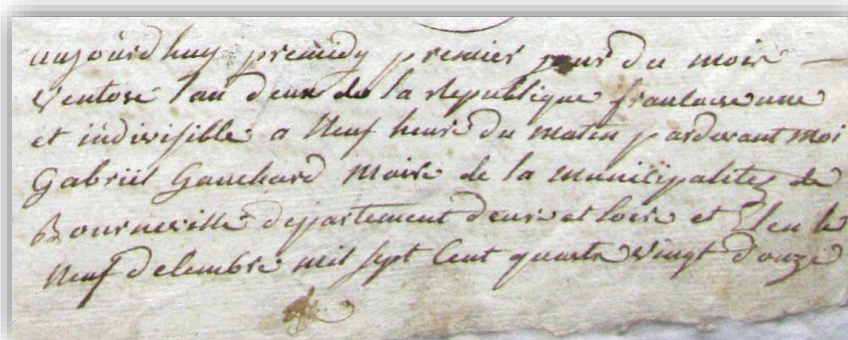 aujourdhuy premidy premier jour du mois
ventose lan deux de la republique francaise une
et indivisible a Neuf heure du matin pardevant moi
Gabriel Gauchard maire de la municipalité de
Bourneville departement deure et loire et Eleu le
Neuf decembre mil sept cent quatre vingt douze